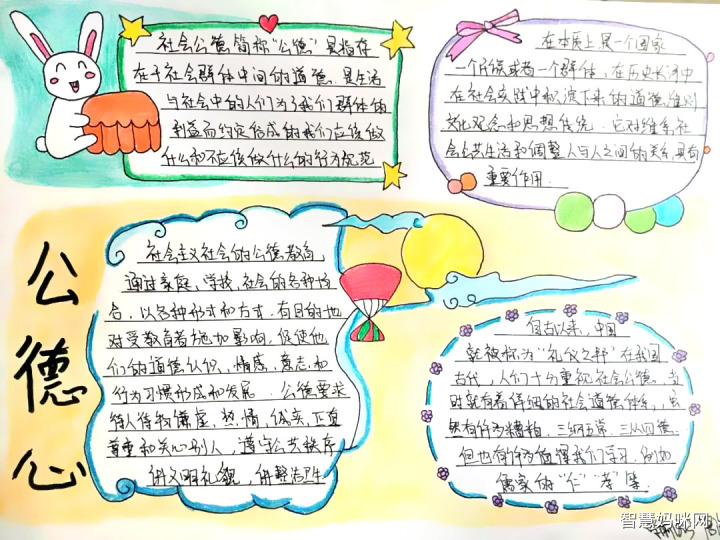 社会公德简称"公德"是指存
在于社会群体中间的道德,是生活
与社会中的人们为了我们群体的
利益而约定俗成的我们应该做
什么和不应该做什么的行为规范
在本质上是一个国家
一个民族或者一个群体,在历史长河中
在社会实践中积淀下来的道德准则
文化观念和思想传统.它对维系社
会公共生活和调整人与人之间的关系具有
重要作用.
公德心
社会主义社会的公德教育,
通过家庭、学校、社会的各种场
合,以各种形式和方式,有目的地
对受教育者施加影响,促使他
们的道德认识、情感、意志和
行为习惯形成和发展.公德要求
待人待物谦虚,热情,诚实,正直
尊重和关心别人,遵守公共秩序
讲文明礼貌,讲整洁卫生
自古以来,中国
就被称为"礼仪之邦"在我国
古代,人们十分重视社会公德,当
时就有着详细的社会道德体系,虽
然有许多糟粕,三纲五常,三从四德.
但也有许多值得我们学习,例如
儒家的"仁""孝"等.
智慧妈咪网